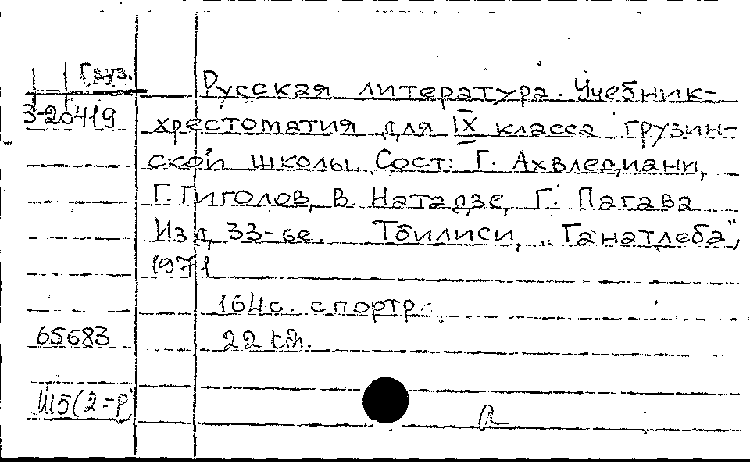 Груз.
Русская литература. Учебник-
3-20419
хрестоматия для IX класса грузин-
ской школы. Сост: Г. Ахвледиани,
Г. Гиголов, В. Натадзе, Г. Пагава
Изд 33-ье. Тбилиси, „Ганатлеба",
1971
164с. с портр.
65683
22 см.
Ш5(2=Р)